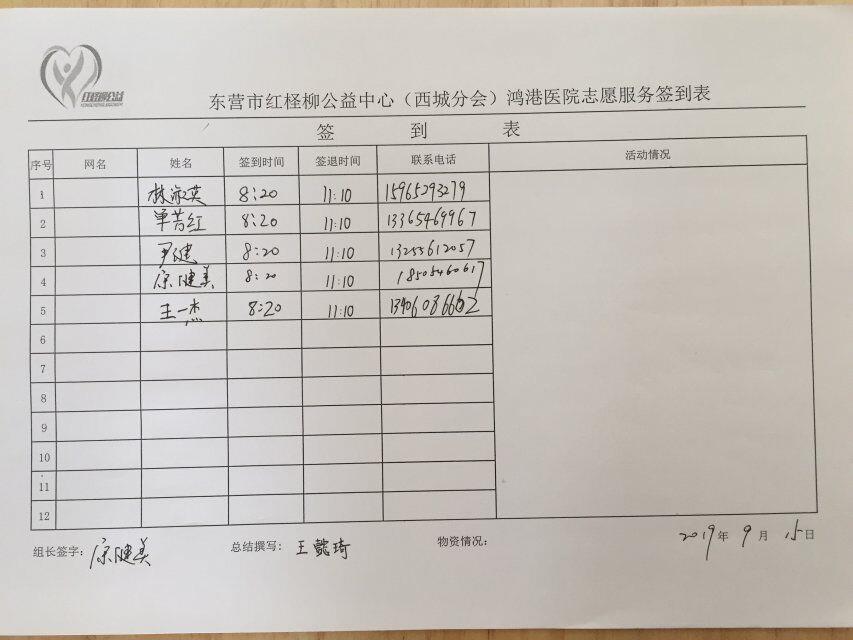 红柽柳公益
东营市红柽柳公益中心（西城分会）鸿港医院志愿服务签到表
签 到 表
序号 网名 姓名 签到时间 签退时间 联系电话 活动情况
1 林淑英 8:20 11:10 15965293279
2 单芳红 8:20 11:10 13365469967
3 尹健 8:20 11:10 13255612057
4 原健美 8:20 11:10 18505460617
5 王一杰 8:20 11:10 13406086662
6
7
8
9
10
11
12
组长签字：原健美 总结撰写：王懿琦 物资情况： 2019年 9月 15日